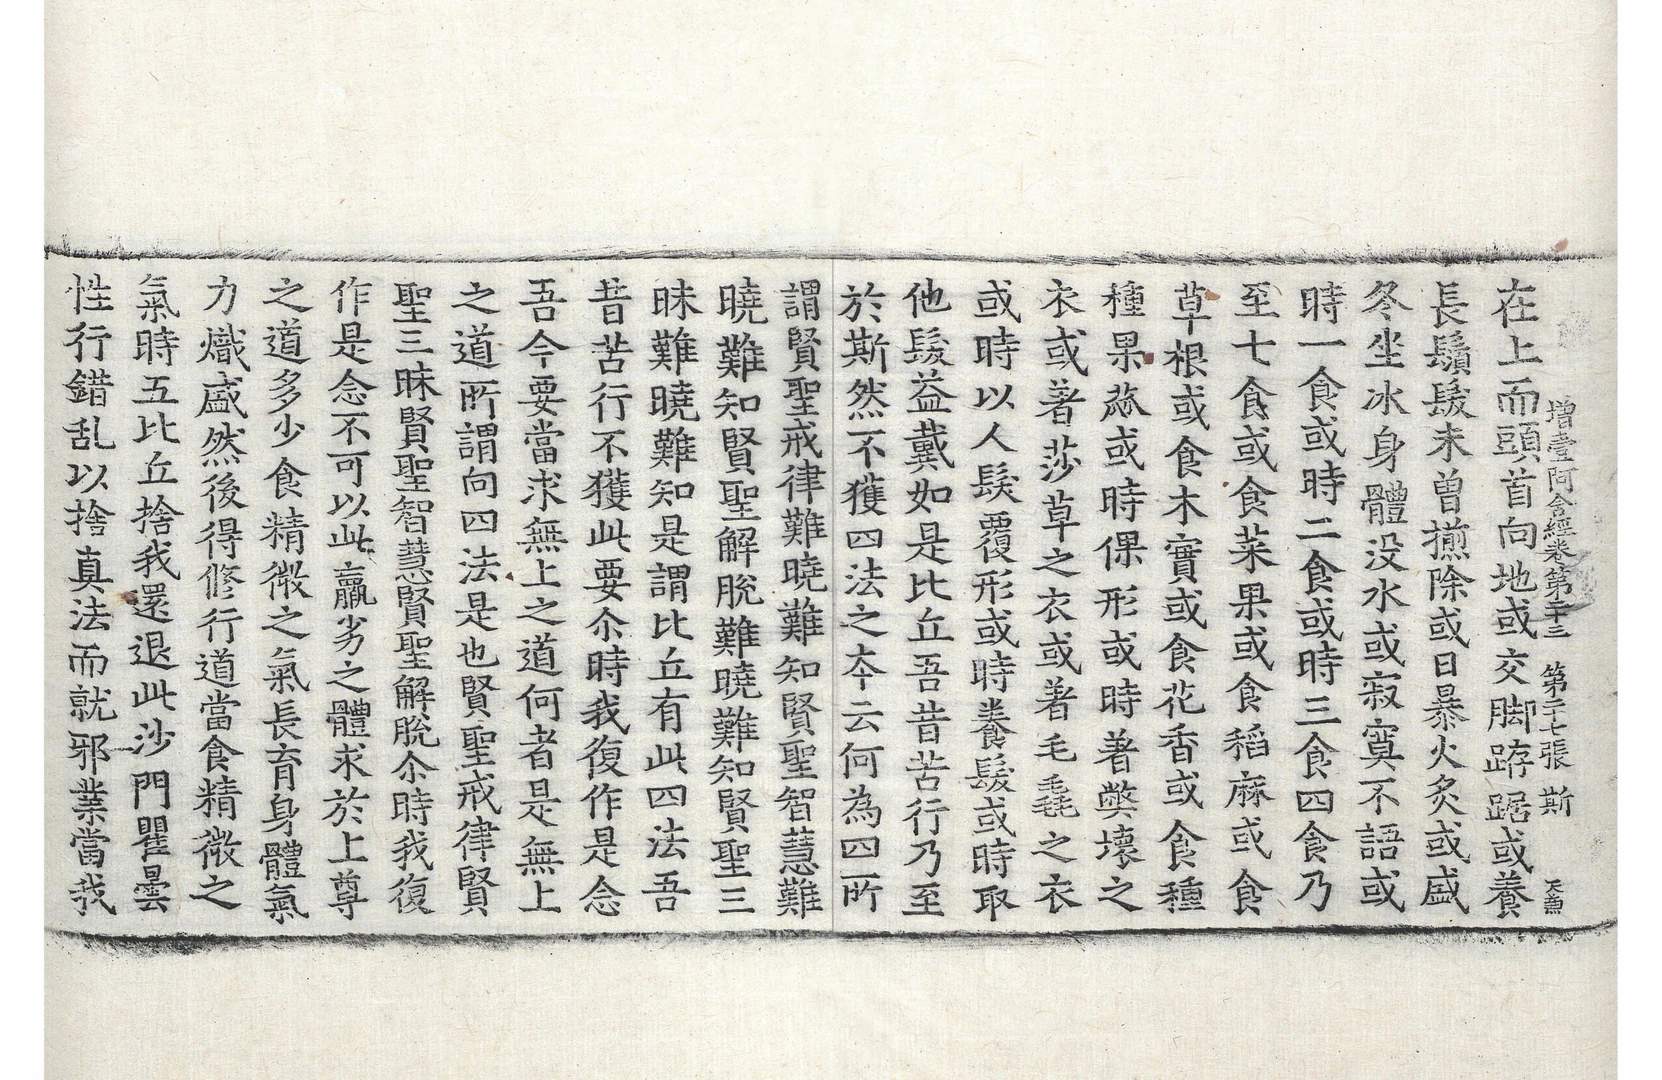 增壹阿含經卷第二十三 第二十七張 斯
在上而頭首向地或交脚踑踞或養
長鬚髮未曾揃除或日暴火炙或盛
冬坐冰身體没水或寂寞不語或
時一食或時二食或時三食四食乃
至七食或食菜果或食稻麻或食
草根或食木實或食花香或食種
種果蓏或時倮形或時著弊壞之
衣或著莎草之衣或著毛毳之衣
或時以人髮覆形或時養髮或時取
他髮益戴如是比丘吾昔苦行乃至
於斯然不獲四法之本云何為四所
謂賢聖戒律難曉難知賢聖智慧難
曉難知賢聖解脫難曉難知賢聖三
昧難曉難知是謂比丘有此四法吾
昔苦行不獲此要尒時我復作是念
吾今要當求無上之道何者是無上
之道所謂向四法是也賢聖戒律賢
聖三昧賢聖智慧賢聖解脫尒時我復
作是念不可以此羸劣之體求於上尊
之道多少食精微之氣長育身體氣
力熾盛然後得修行道當食精微之
氣時五比丘捨我還退此沙門瞿曇
性行錯乱以捨真法而就邪業當我